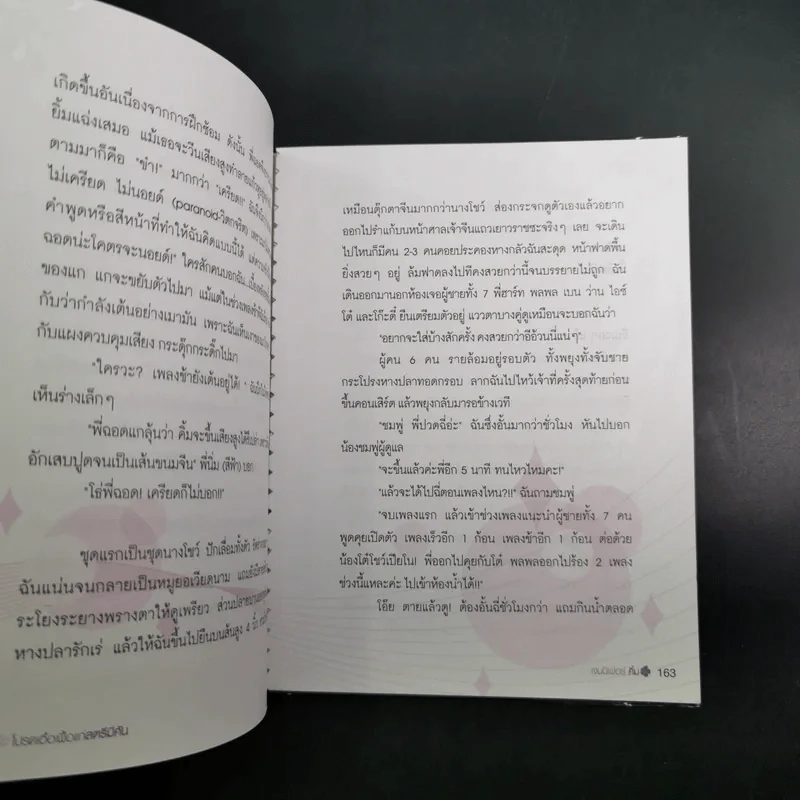 เกิดขึ้นอันเนื่องจากการฝึกซ้อม ดังนั้น
ยิ้มแฉ่งเสมอ แม้เธอจะวีนเสียงสูงทำลาย
ตามมาก็คือ "ขำ!" มากกว่า "เครียด!"
ไม่เครียด ไม่นอยด์ (paranoid-วิตกจริต)
คำพูดหรือสีหน้าที่ทำให้ฉันคิดแบบนี้ได้
ฉอดน่ะโคตรจะนอยด์!" ใครสักคนบอกฉัน...
ของแก แกจะขยับตัวไปมา แม้แต่ในช่วงเพลงช้า
กับว่ากำลังเต้นอย่างเมามัน เพราะฉันเห็น
กับแผงควบคุมเสียง กระดุ๊กกระดิ๊กไปมา
"ใครวะ? เพลงช้ายังเต้นอยู่ได้!"
เห็นร่างเล็กๆ
"พี่ฉอดแกลุ้นว่า คิ้มจะขึ้นเสียงสูงได้
อักเสบปูดจนเป็นเส้นขนมจีน" พี่นิ่ม (สีฟ้า) บอก
"โธ่พี่ฉอด! เครียดก็ไม่บอก!!"
ชุดแรกเป็นชุดนางโชว์ ปักเลื่อมทั้งตัว
ฉันแน่นจนกลายเป็นหมูยอเวียดนาม
ระโยงระยางพรางตาให้ดูเพรียว
หางปลารักเร่ แล้วให้ฉันขึ้นไปยืนบนส้นสูง 4 นิ้ว
เหมือนตุ๊กตาจีนมากกว่านางโชว์ ส่องกระจกดูตัวเองแล้วอยาก
ออกไปรำแก้บนหน้าศาลเจ้าจีนแถวเยาวราชซะจริงๆ เลย จะเดิน
ไปไหนก็มีคน 2-3 คนคอยประคองหางกลัวฉันสะดุด หน้าฟาดพื้น
ยิ่งสวยๆ อยู่ ล้มฟาดลงไปทีคงสวยกว่านี้จนบรรยายไม่ถูก ฉัน
เดินออกมานอกห้องเจอผู้ชายทั้ง 7 พี่ฮาร์ท พลพล เบน ว่าน ไอซ์
โต๋ และโก๊ะตี๋ ยืนเตรียมตัวอยู่ แววตาบางคู่ดูเหมือนจะบอกฉันว่า
"อยากจะใส่บ้างสักครั้ง คงสวยกว่าอีอ้วนนี่แน่ๆ"
ผู้คน 6 คน รายล้อมอยู่รอบตัว ทั้งพยุงทั้งจับชาย
กระโปรงหางปลาทอดกรอบ ลากฉันไปไหว้เจ้าที่ครั้งสุดท้ายก่อน
ขึ้นคอนเสิร์ต แล้วพยุงกลับมารอข้างเวที
"ชมพู่ พี่ปวดฉี่อ่ะ" ฉันซึ่งอั้นมากว่าชั่วโมง หันไปบอก
น้องชมพู่ผู้ดูแล
"จะขึ้นแล้วค่ะพี่อีก 5 นาที ทนไหวไหมคะ!"
"แล้วจะได้ไปฉี่ตอนเพลงไหน?!!" ฉันถามชมพู่
"จบเพลงแรก แล้วเข้าช่วงเพลงแนะนำผู้ชายทั้ง 7 คน
พูดคุยเปิดตัว เพลงเร็วอีก 1 ก้อน เพลงช้าอีก 1 ก้อน ต่อด้วย
น้องโต๋โชว์เปียโน! พี่ออกไปคุยกับโต๋ พลพลออกไปร้อง 2 เพลง
ช่วงนี้แหละค่ะ ไปเข้าห้องน้ำได้!"
โอ๊ย ตายแล้วตู! ต้องอั้นฉี่ชั่วโมงกว่า แถมกินน้ำตลอด
เจนนิเฟอร์ คิ้ม 163